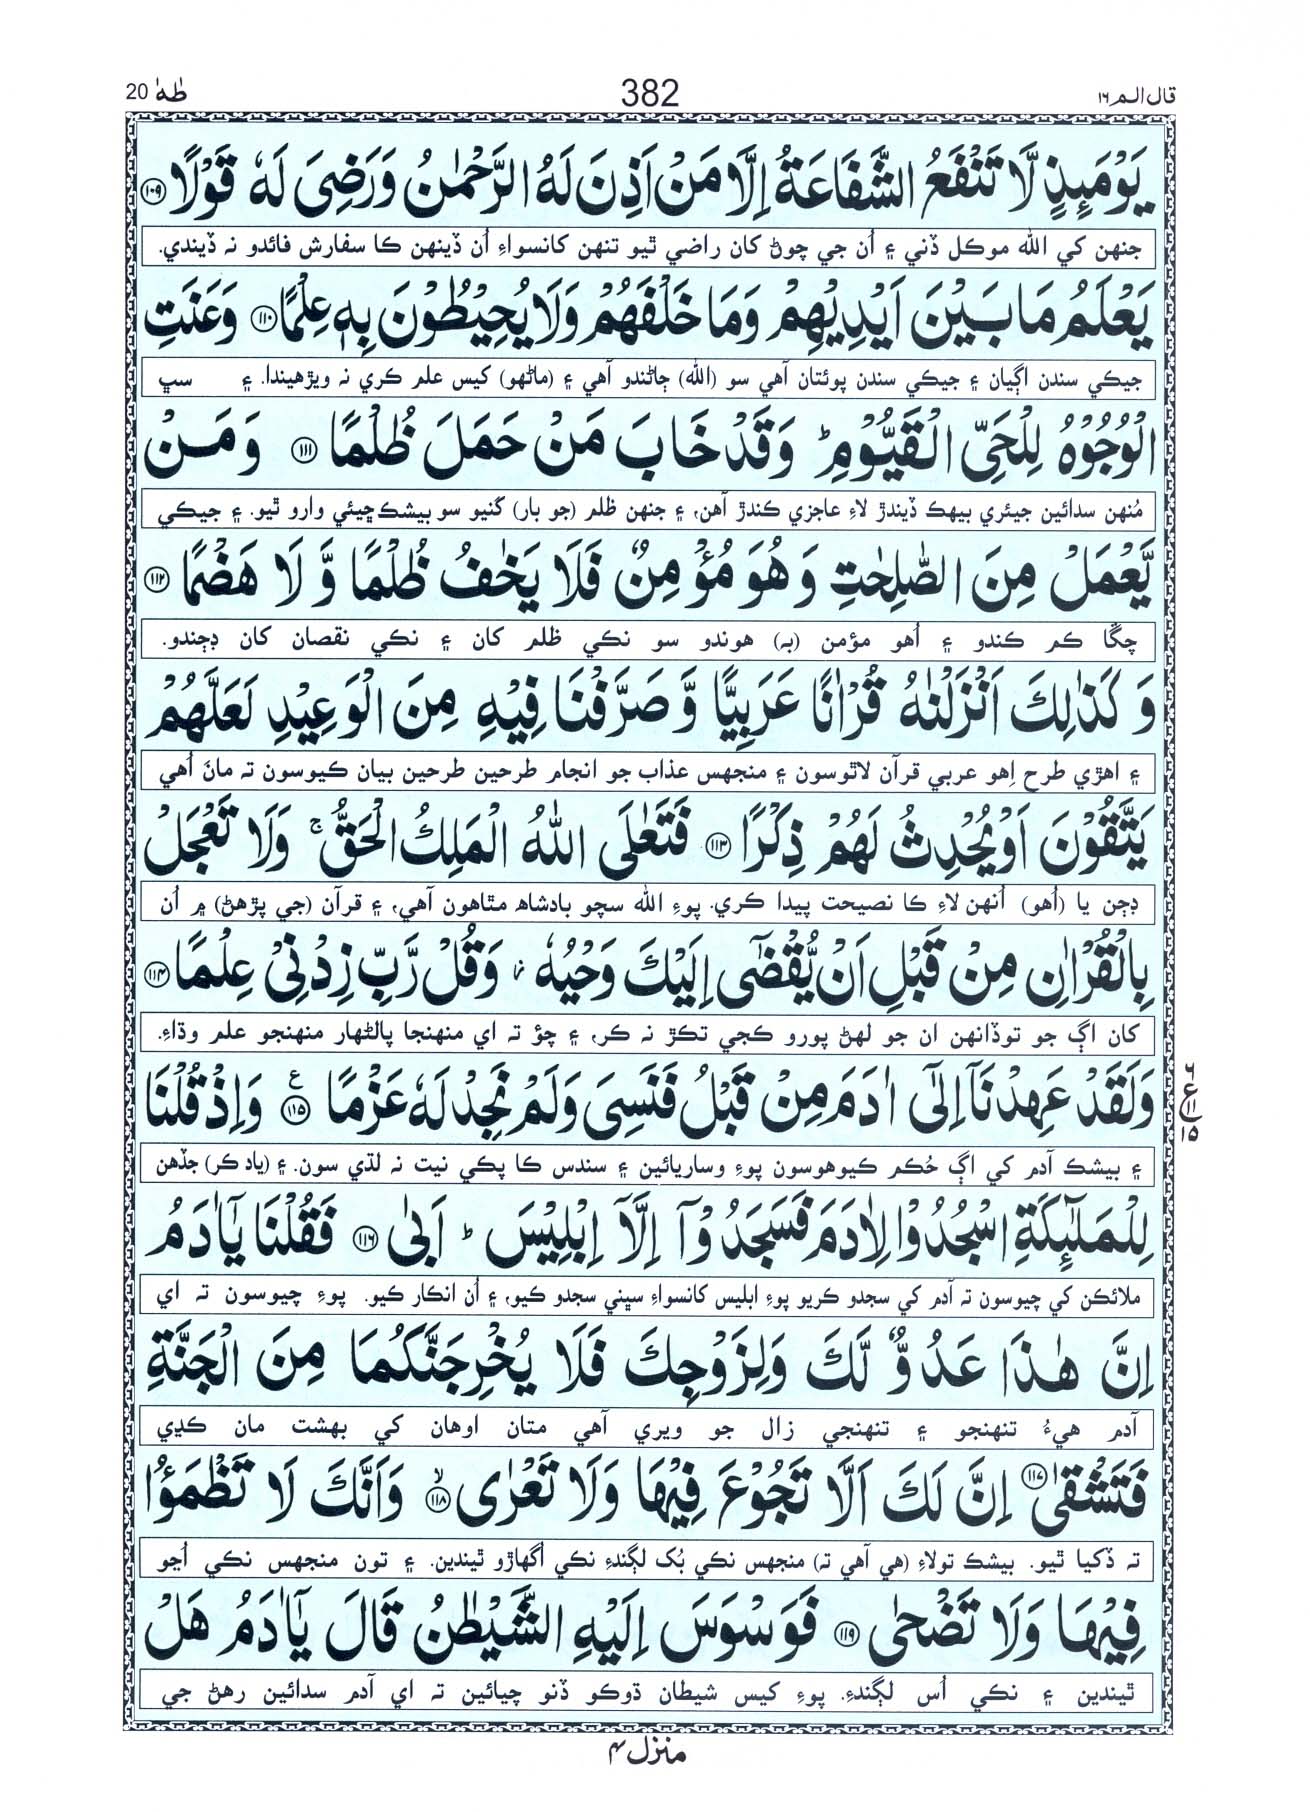 قال الم ١٦
382
طٰهٰ 20
يَوْمَىِٕذٍ لَّا تَنْفَعُ الشَّفَاعَةُ اِلَّا مَنْ اَذِنَ لَهُ الرَّحْمٰنُ وَرَضِىَ لَهٗ قَوْلًا ۝۱۰۹
جنهن کي الله موڪل ڏني ۽ اُن جي چوڻ کان راضي ٿيو تنهن کانسواءِ اُن ڏينهن ڪا سفارش فائدو نہ ڏيندي.
يَعْلَمُ مَا بَيْنَ اَيْدِيْهِمْ وَمَا خَلْفَهُمْ وَلَا يُحِيْطُوْنَ بِهٖ عِلْمًا ۝۱۱۰ وَعَنَتِ
جيڪي سندن اڳيان ۽ جيڪي سندن پوئتان آهي سو (الله) ڄاڻندو آهي ۽ (ماڻهو) کيس علم ڪري نہ ويڙهيندا. ۽ سڀ
الْوُجُوْهُ لِلْحَىِّ الْقَيُّوْمِ ؕ وَقَدْ خَابَ مَنْ حَمَلَ ظُلْمًا ۝۱۱۱ وَمَنْ
مُنهن سدائين جيئري بيهڪ ڏيندڙ لاءِ عاجزي ڪندڙ آهن، ۽ جنهن ظلم (جو بار) کنيو سو بيشڪ ڇيئي وارو ٿيو. ۽ جيڪي
يَّعْمَلْ مِنَ الصّٰلِحٰتِ وَهُوَ مُؤْمِنٌ فَلَا يَخٰفُ ظُلْمًا وَّلَا هَضْمًا ۝۱۱۲
چڱا ڪم ڪندو ۽ اُهو مؤمن (بہ) هوندو سو نڪي ظلم کان ۽ نڪي نقصان کان ڊڄندو.
وَكَذٰلِكَ اَنْزَلْنٰهُ قُرْاٰنًا عَرَبِيًّا وَّصَرَّفْنَا فِيْهِ مِنَ الْوَعِيْدِ لَعَلَّهُمْ
۽ اهڙي طرح اِهو عربي قرآن لاٿوسون ۽ منجهس عذاب جو انجام طرحين طرحين بيان ڪيوسون تہ مانَ اُهي
يَتَّقُوْنَ اَوْ يُحْدِثُ لَهُمْ ذِكْرًا ۝۱۱۳ فَتَعٰلَى اللهُ الْمَلِكُ الْحَقُّ ۚ وَلَا تَعْجَلْ
ڊڄن يا (اُهو) اُنهن لاءِ ڪا نصيحت پيدا ڪري. پوءِ الله سچو بادشاهہ مٿاهون آهي، ۽ قرآن (جي پڙهڻ) ۾ اُن
بِالْقُرْاٰنِ مِنْ قَبْلِ اَنْ يُّقْضٰٓى اِلَيْكَ وَحْيُهٗ ؗ وَقُلْ رَّبِّ زِدْنِىْ عِلْمًا ۝۱۱۴
کان اڳ جو توڏانهن ان جو لهڻ پورو ڪجي تڪڙ نہ ڪر، ۽ چؤ تہ اي منهنجا پالڻهار منهنجو علم وڌاءِ.
وَلَقَدْ عَهِدْنَاۤ اِلٰٓى اٰدَمَ مِنْ قَبْلُ فَنَسِىَ وَلَمْ نَجِدْ لَهٗ عَزْمًا ۝۱۱۵ وَاِذْ قُلْنَا
۽ بيشڪ آدم کي اڳ حُڪم ڪيوهوسون پوءِ وساريائين ۽ سندس ڪا پڪي نيت نہ لڌي سون. ۽ (ياد ڪر) جڏهن
لِلْمَلٰٓىِٕكَةِ اسْجُدُوْا لِاٰدَمَ فَسَجَدُوْۤا اِلَّاۤ اِبْلِيْسَ ؕ اَبٰى ۝۱۱۶ فَقُلْنَا يٰۤاٰدَمُ
ملائڪن کي چيوسون تہ آدم کي سجدو ڪريو پوءِ ابليس کانسواءِ سڀني سجدو ڪيو، ۽ اُن انڪار ڪيو. پوءِ چيوسون تہ اي
اِنَّ هٰذَا عَدُوٌّ لَّكَ وَلِزَوْجِكَ فَلَا يُخْرِجَنَّكُمَا مِنَ الْجَنَّةِ
آدم هيءُ تنهنجو ۽ تنهنجي زال جو ويري آهي متان اوهان کي بهشت مان ڪڍي
فَتَشْقٰى ۝۱۱۷ اِنَّ لَكَ اَلَّا تَجُوْعَ فِيْهَا وَلَا تَعْرٰى ۝۱۱۸ ۙ وَاَنَّكَ لَا تَظْمَؤُا
تہ ڏکيا ٿيو. بيشڪ تولاءِ (هي آهي تہ) منجهس نڪي بُک لڳندءِ نڪي اُگهاڙو ٿيندين. ۽ تون منجهس نڪي اُڃو
فِيْهَا وَلَا تَضْحٰى ۝۱۱۹ فَوَسْوَسَ اِلَيْهِ الشَّيْطٰنُ قَالَ يٰۤاٰدَمُ هَلْ
ٿيندين ۽ نڪي اُس لڳندءِ. پوءِ کيس شيطان ڌوڪو ڏنو چيائين تہ اي آدم سدائين رهڻ جي
٦ ع ١١ ١٥
منزل ۴